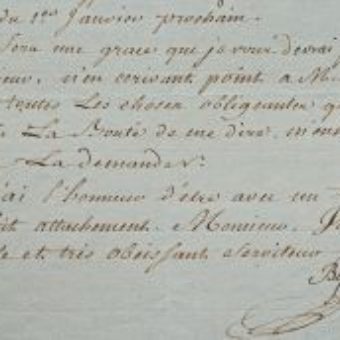 du 1er Janvier prochain.
Sera une grace que je vous devrai
n'en ecrivant point a M
toutes Les choses obligeantes q
La Bonté de me dire, m'en
La demander.
j'ai l'honneur d'être avec un
attachement, Monsieur,
et très obeissant Serviteur